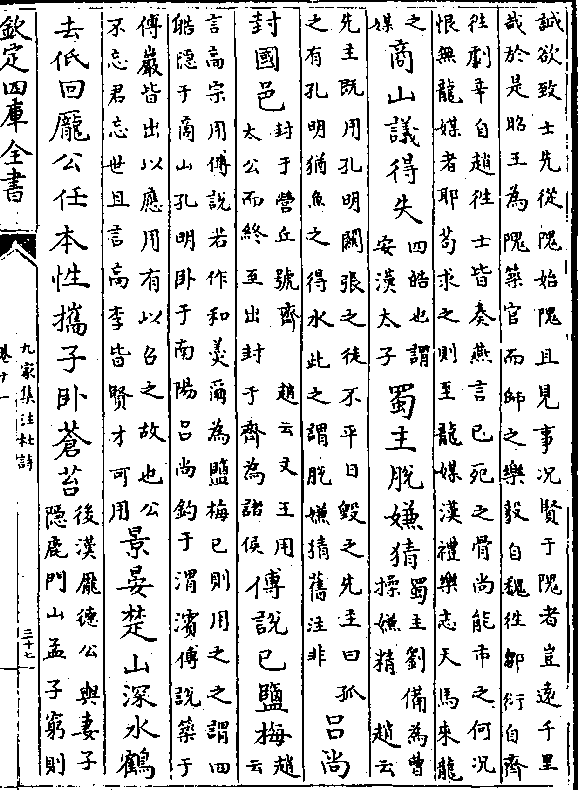 誠欲致士先從隗始隗且見事况賢于隗者豈遠千里
哉於是昭王為隗築宫而師之樂毅自魏徃鄒衍自齊
徃劇辛自趙徃士皆奏燕言已死之骨尚能市之何况
恨無龍媒者耶苟求之則至龍媒漢禮樂志天馬来龍
之
媒
商山議得失
四皓也謂
安漢太子
蜀主脱嫌猜
蜀主劉備為曹
操嫌精 趙云
先主既用孔明關張之徒不平日毁之先主曰孤
之有孔明猶魚之得水此之謂脱嫌猜舊注非
呂尚
封國邑
封于營丘號齊 趙云文王用
太公而終 至出封于齊為諸侯
傅說已鹽梅
趙
云
言高宗用傅說若作和羮爾為鹽梅已則用之之謂四
皓隠于商山孔明卧于南陽呂尚釣于渭濱傅說築于
傅巖皆出以應用有以召之故也公
不忘君忘世且言高李皆賢才可用
景晏楚山深水鶴
去低回龎公任本性攜子卧蒼苔
後漢龎徳公與妻子
隠鹿門山孟子窮則
欽定四庫全書
九家集注杜詩
卷十一
三十七